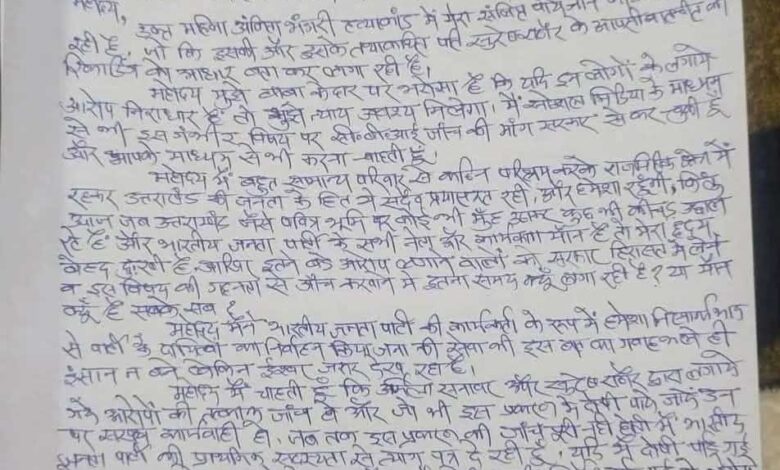 महोदय,
उक्त महिला अंकिता भंडारी हत्याकांड में मेरा संलिप्त
रही है, जो कि इसकी और इसके तथाकथित पति सुरेश राठौर के आपसी बातचीत की
रिकार्डिंग को आधार बना कर लगा रही है।
महोदय मुझे बाबा केदार पर भरोसा है कि यदि इन लोगों के लगाये
आरोप निराधार है तो मुझे न्याय अवश्य मिलेगा। मैं सोशल मिडिया के माध्यम
से भी इस गंभीर विषय पर सी०बी०आई जाँच की मांग सरकार से कर चुकी हूँ
और आपके माध्यम से भी करना चाहती हूँ।
महोदय मैं बहुत सामान्य परिवार से कठिन परिश्रम करके राजनितिक क्षेत्र में
रहकर उत्तराखंड की जनता के हित में सदैव प्रयासरत रही, और हमेशा रहूँगी, किन्तु
आज जब उत्तराखण्ड जैसे पवित्र भूमि पर कोई भी मुँह उठाकर कुछ भी कीचड़ उछाल
रहे है और भारतीय जनता पार्टी के सभी नेता और कार्यकर्ता मौन है तो मेरा हृदय
बेहद दुःखी है, आखिर इतने बड़े आरोप लगाने वालों को सरकार हिरासत में लेने
व इस विषय की गहनता से जाँच करवाने में इतना समय क्यूँ लगा रही है? या मौन
क्यूँ है सबके सब?
महोदय मैंने भारतीय जनता पार्टी की कार्यकर्ता के रूप में हमेशा निस्वार्थ भाव
से पार्टी के दायित्वों का निर्वाहन किया, जनता की सेवा की इस बात का गवाह भले ही
इंसान न बने लेकिन ईश्वर जरूर देख रहा है।
महोदय मैं चाहती हूँ कि उर्मिला सनावर और सुरेश राठौर द्वारा लगाये
गये आरोपों की तत्काल जाँच हो और जो भी इस प्रकरण में दोषी पाये जाये उन
पर सख्त कार्यवाही हो, जब तक इस प्रकरण की जाँच पूरी नही होती मैं भारतीय
जनता पार्टी की प्राथमिक सदस्यता से त्याग पत्र दे रही हूँ, यदि मैं दोषी पाई गई